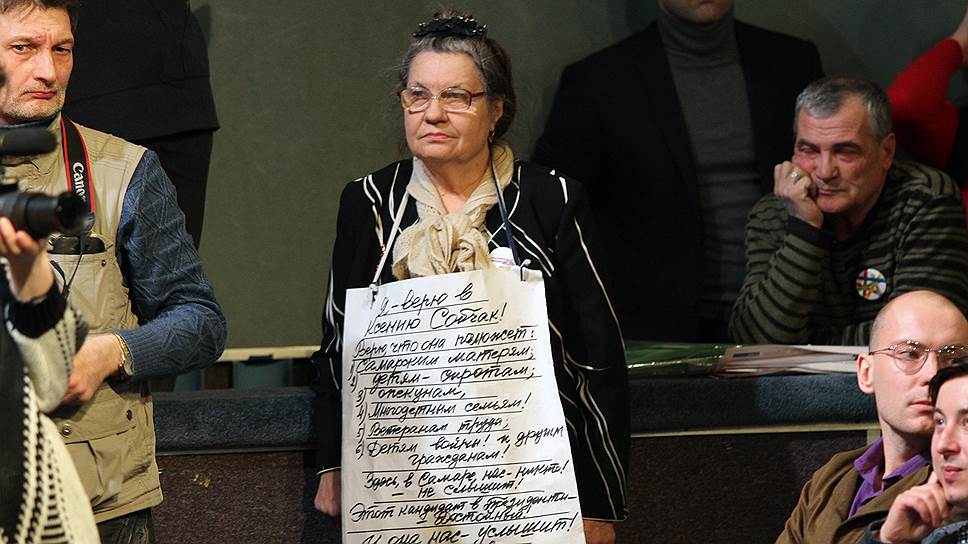 Я-верю в
Ксению Собчак!
Верю, что она поможет:
1) Самарским матерям;
2) детям-сиротам;
3) опекунам,
4) Многодетным семьям!
5) Ветеранам труда,
6) Детям войны! и другим
гражданам!
Здесь, в Самаре, нас-никто!
- не слышит!
Этот кандидат в президенты-
- достойный!
И она нас-услышит!
Canon